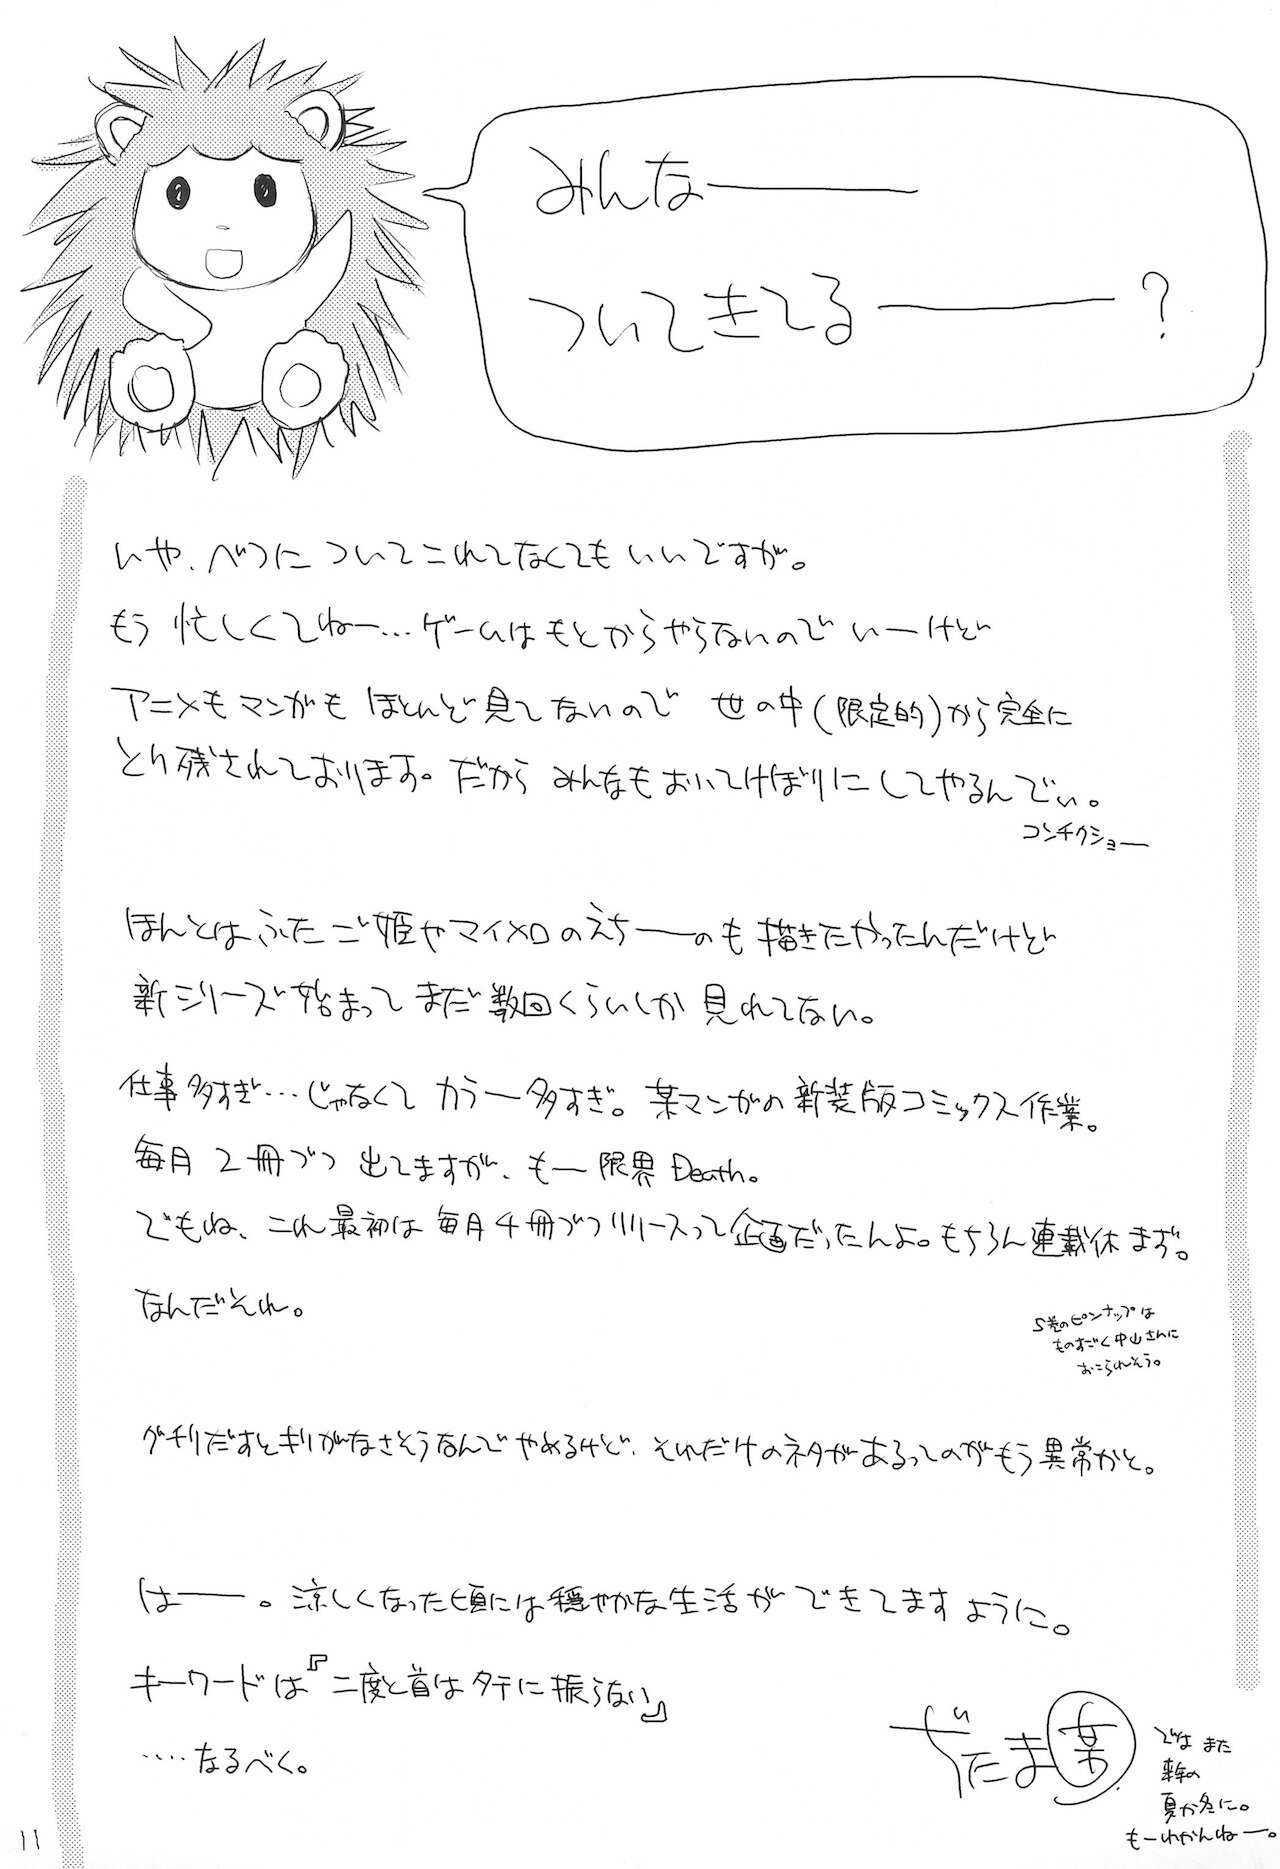 みんな―――
ついてきてる―――?
いや、べつについてこれてなくてもいいですが。
もう忙しくてねー…ゲームはもとからやらないのでいーけど
アニメもマンガもほとんど見てないので 世の中(限定的)から完全に
とり残されております。だからみんなもおいてけぼりにしてやるんでぃ。
コンチクショー
ほんとはふたご姫やマイメロのえち――のも描きたかったんだけど
新シリーズ始まってまだ数回くらいしか見れてない。
仕事多すぎ…じゃなくてカラー多すぎ。某マンガの新装版コミックス作業。
毎月2冊づつ出てますが、もー限界Death。
でもね、これ最初は毎月4冊づつリリースって企画だったんよ。もちろん連載休まず。
なんだそれ。
5巻のピンナップは
ものすごく中山さんに
おこられそう。
グチりだすとキリがなさそうなんでやめるけど、それだけのネタがあるってのがもう異常かと。
はー―。涼しくなった頃には穏やかな生活ができてますように。
キーワードは『二度と首はタテに振らない』
‥‥なるべく。
ぢたま(某)
ではまた
来年の
夏か冬に。
もーわかんねー。
11